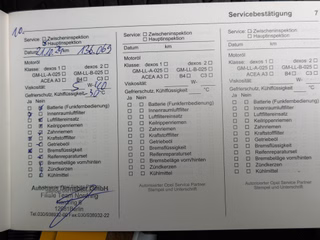 Servicebestätigung 7
10.
Service: Zwischeninspektion
Hauptinspektion
Datum km 136.069
Motoröl
Klasse: dexos 1 dexos 2
GM-LL-A-025 GM-LL-B-025
ACEA A3 B4 C3
Viskosität: 5 W- 40
Gefrierschutz, Kühlflüssigkeit
Ja Nein
Batterie (Funkfernbedienung)
Innenraumluftfilter
Luftfiltereinsatz
Keilrippenriemen
Zahnriemen
Kraftstofffilter
Getriebeöl
Bremsflüssigkeit
Reifenreparaturset
Bremsbeläge vorn/hinten
Zündkerzen
Kühlmittel
Service: Zwischeninspektion
Hauptinspektion
Datum km
Motoröl
Klasse: dexos 1 dexos 2
GM-LL-A-025 GM-LL-B-025
ACEA A3 B4 C3
Viskosität: W-
Gefrierschutz, Kühlflüssigkeit °C
Ja Nein
Batterie (Funkfernbedienung)
Innenraumluftfilter
Luftfiltereinsatz
Keilrippenriemen
Zahnriemen
Kraftstofffilter
Getriebeöl
Bremsflüssigkeit
Reifenreparaturset
Bremsbeläge vorn/hinten
Zündkerzen
Kühlmittel
Autorisierter Opel Service Partner
Stempel und Unterschrift
Service: Zwischeninspektion
Hauptinspektion
Datum km
Motoröl
Klasse: dexos 1 dexos 2
GM-LL-A-025 GM-LL-B-025
ACEA A3 B4 C3
Viskosität: W-
Gefrierschutz, Kühlflüssigkeit °C
Ja Nein
Batterie (Funkfernbedienung)
Innenraumluftfilter
Luftfiltereinsatz
Keilrippenriemen
Zahnriemen
Kraftstofffilter
Getriebeöl
Bremsflüssigkeit
Reifenreparaturset
Bremsbeläge vorn/hinten
Zündkerzen
Kühlmittel
Autorisierter Opel Service Partner
Stempel und Unterschrift